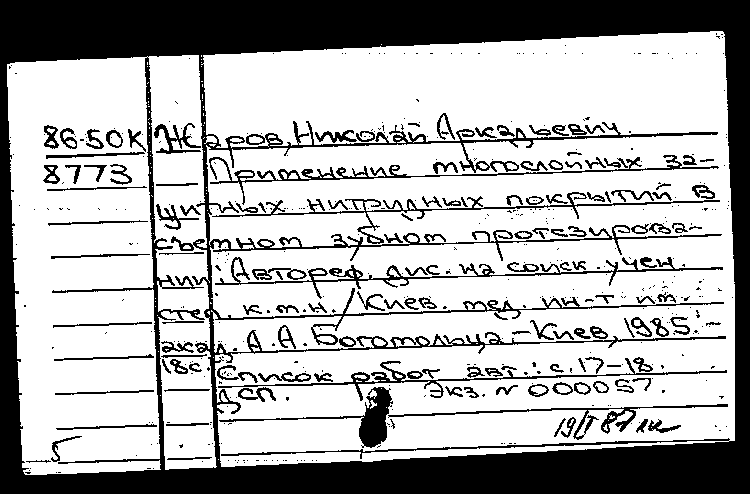 86-50К Жаров, Николай Аркадьевич
8773 Применение многослойных за-
щитных нитридных покрытий в
съемном зубном протезирова-
нии: Автореф. дис. на соиск. учен.
степ. к.м.н. / Киев. мед. ин-т им.
акад. А.А. Богомольца. - Киев, 1985. -
18с.
Список работ авт.: с. 17-18.
ДСП. Экз. N 000057.
5 19/I 87